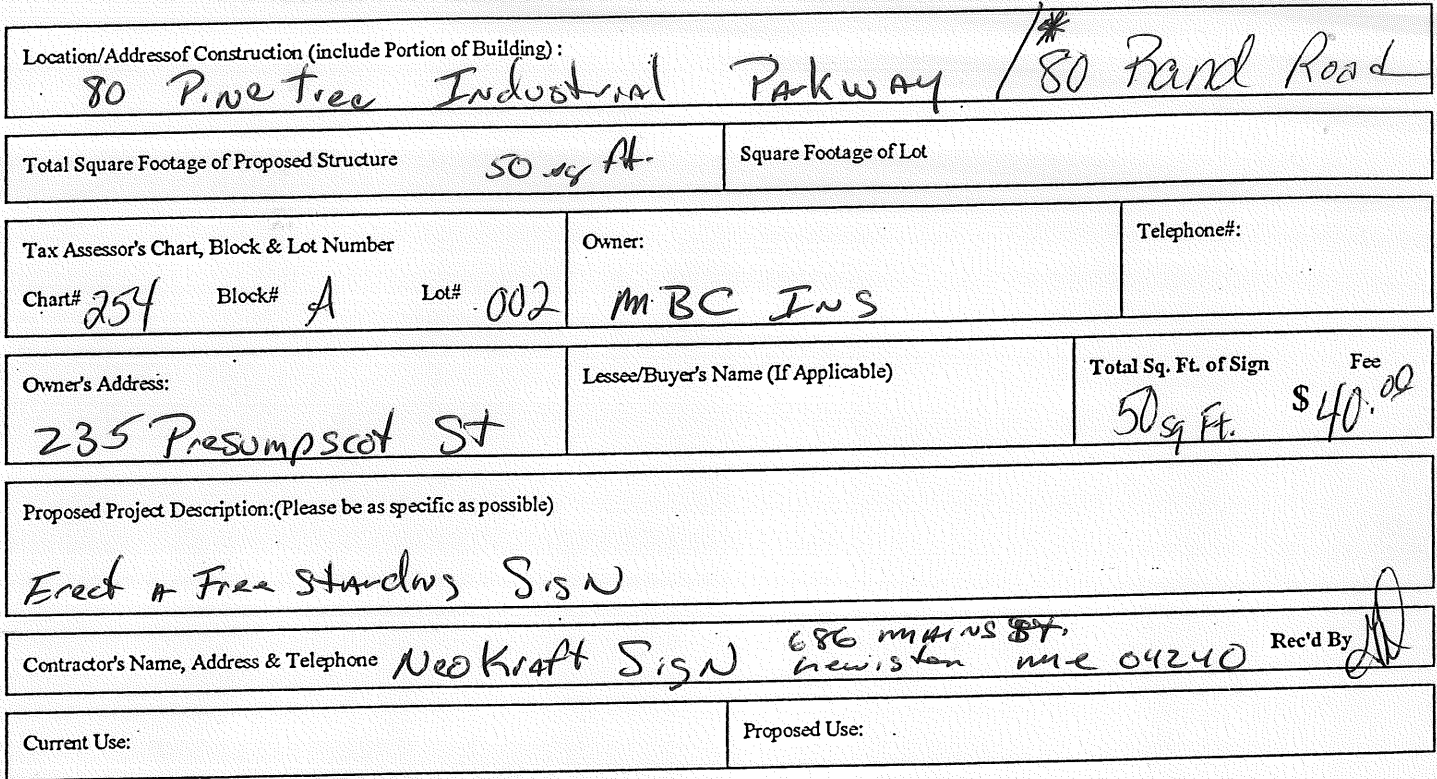 Location/Addressof Construction (include Portion of Building) :
80 Pine Tree Industrial Parkway / * 80 Rand Road
Total Square Footage of Proposed Structure 50 sq ft. Square Footage of Lot
Tax Assessor's Chart, Block & Lot Number Owner: Telephone#:
Chart# 254 Block# A Lot# 002 MBC INS
Owner's Address: Lessee/Buyer's Name (If Applicable) Total Sq. Ft. of Sign Fee
235 Presumpscot St 50 sq Ft. $40.00
Proposed Project Description:(Please be as specific as possible)
Erect A Free Standing Sign
686 MAIN St.
Contractor's Name, Address & Telephone Neo Kraft Sign Lewiston me 04240 Rec'd By
Current Use: Proposed Use: